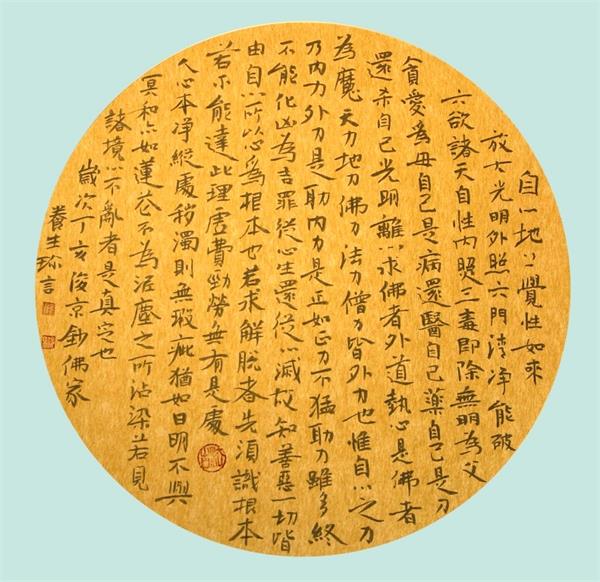 自心地上覺性如來
放大光明外照六門清淨能破
六欲諸天自性內照三毒即除無明為父
貪愛為母自己是病還醫自己藥自己是刀
還殺自己光明離心求佛者外道執心是佛者
為魔天力地力佛力法力僧力皆外力也惟自心之力
乃內力外力是助內力是正如正力不猛助力雖多終
不能化凶為吉罪從心生還從心滅故知善惡一切皆
由自心所以心為根本也若求解脫者先須識根本
若不能達此理虛費勤勞無有是處
人心本淨縱處穢濁則無瑕疵猶如日明不與
冥和亦如蓮花不為泥塵之所沾染若見
諸境心不亂者是真定也
歲次丁亥俊京鈔佛家
養生珎言